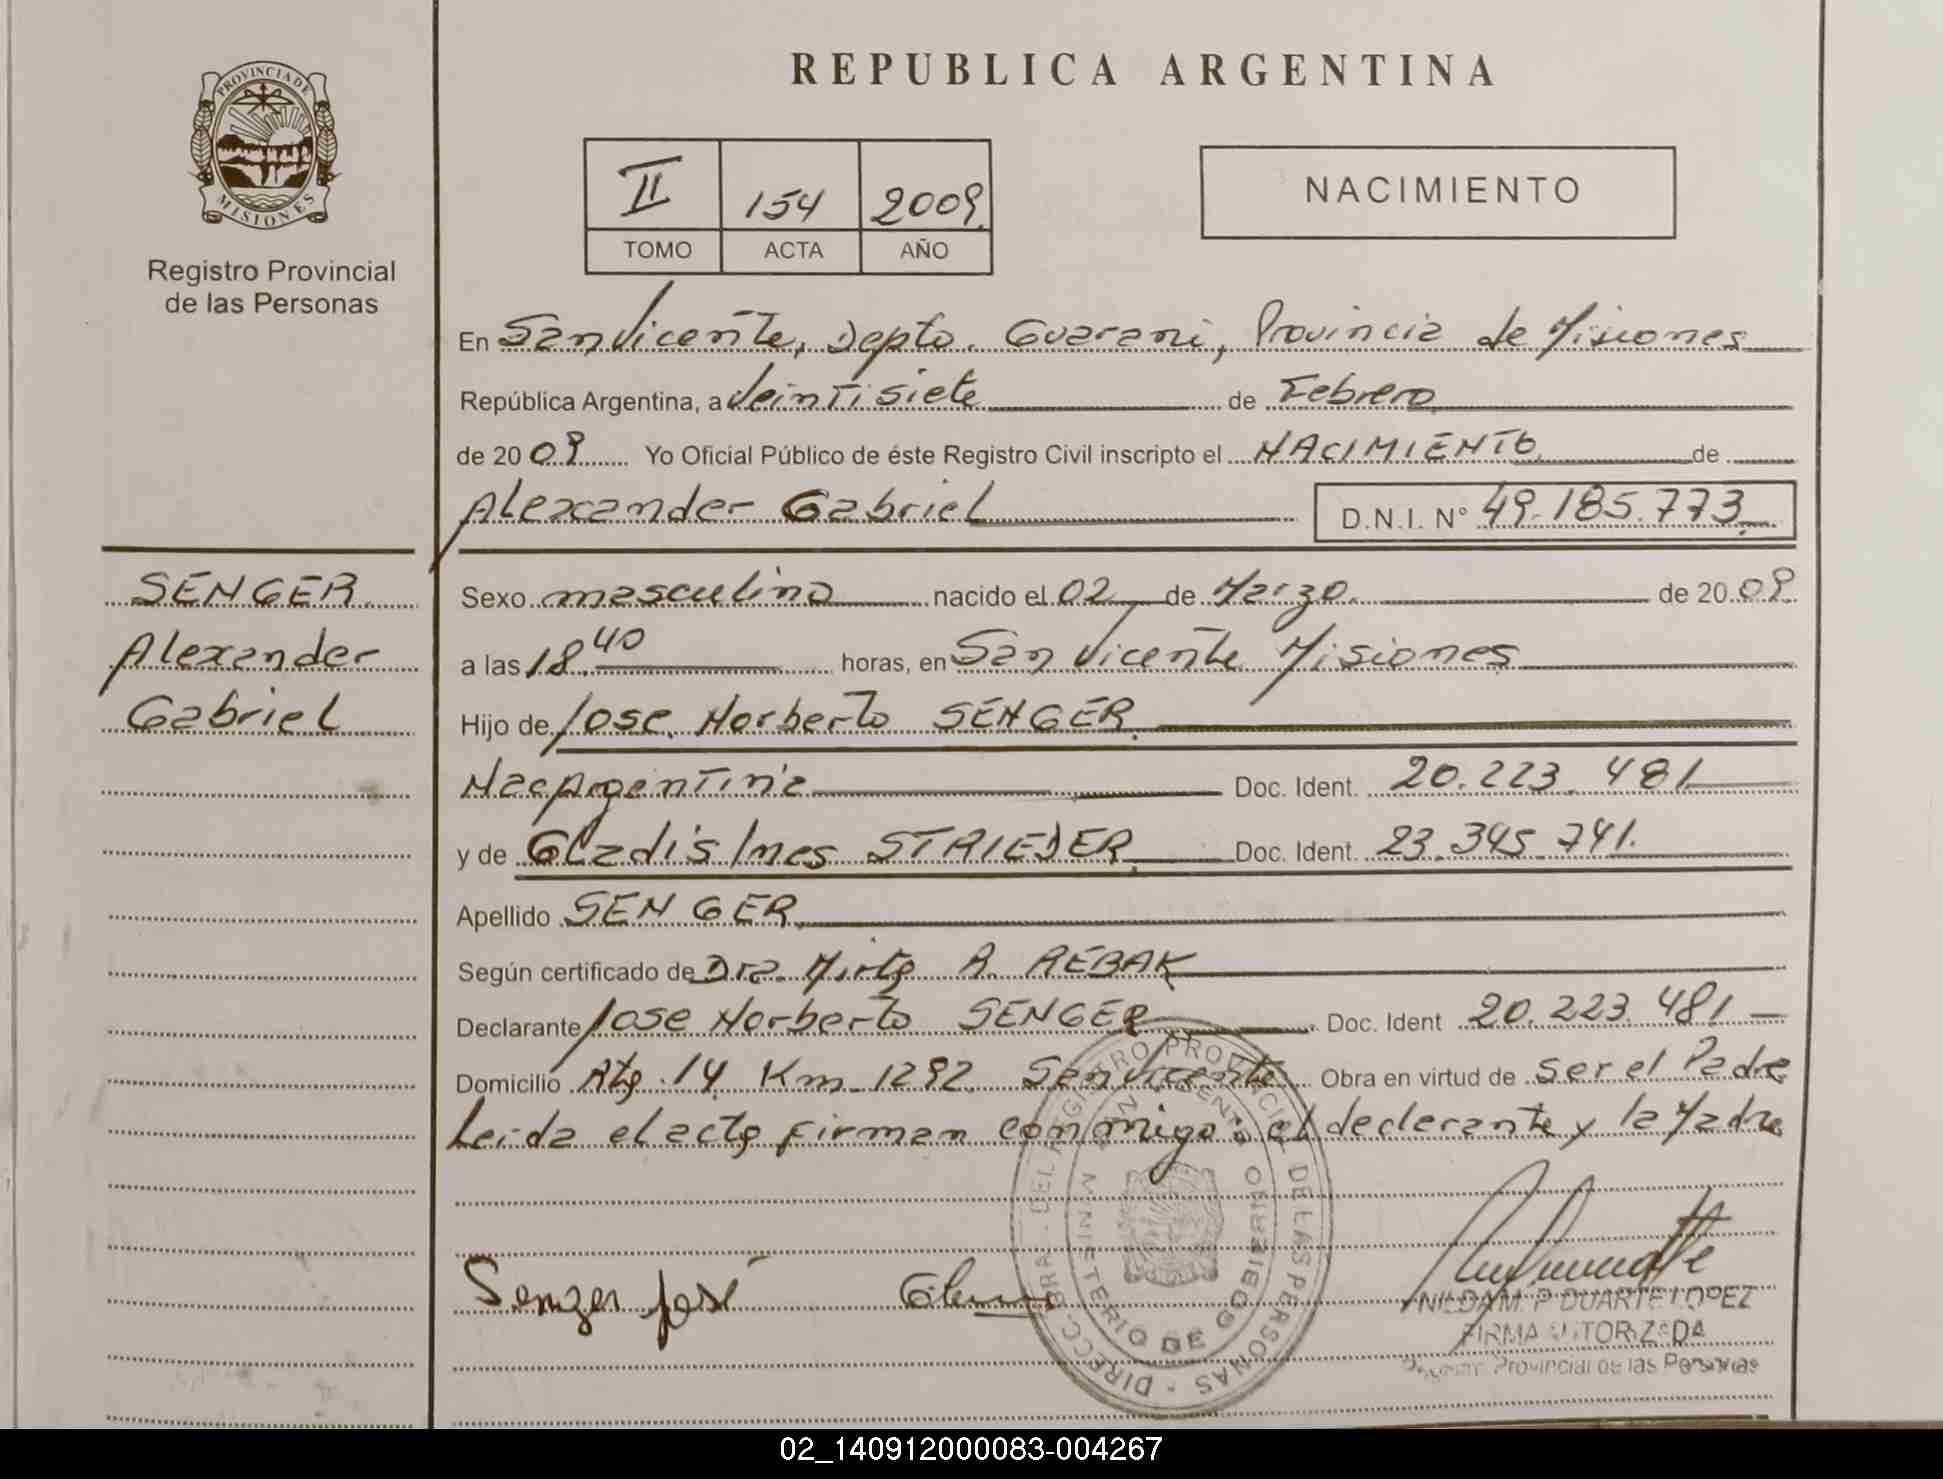 PROVINCIA DE
MISIONES
Registro Provincial
de las Personas
REPUBLICA ARGENTINA
II 154 2009
TOMO ACTA AÑO
NACIMIENTO
En San Vicente, Depto. Guarani, Provincia de Misiones
República Argentina, a Veintisiete de Febrero
de 2009 Yo Oficial Público de éste Registro Civil inscripto el NACIMIENTO de
Alexander Gabriel D.N.I. N° 49.185.773
SENGER
Alexander
Gabriel
Sexo masculino nacido el 02 de Marzo de 2009
a las 18.40 horas, en San Vicente Misiones
Hijo de Jose Norberto SENGER
Nac Argentina Doc. Ident. 20.223.481
y de Gladis Ines STRIEDER Doc. Ident. 23.345.741.
Apellido SENGER
Según certificado de Dra. Mirta A. REBAK
Declarante Jose Norberto SENGER Doc. Ident 20.223.481
Domicilio Rta 14 Km 1292 San Vicente Obra en virtud de ser el Padre
Leida el acta firman conmigo: el declarante y la Madre
Senger José
DIRECC. GRAL. DEL REGISTRO PROVINCIAL DE LAS PERSONAS
MINISTERIO DE GOBIERNO
SAN VICENTE
NILDA M. P. DUARTE LOPEZ
FIRMA AUTORIZADA
Provincial de las Personas
02_140912000083-004267